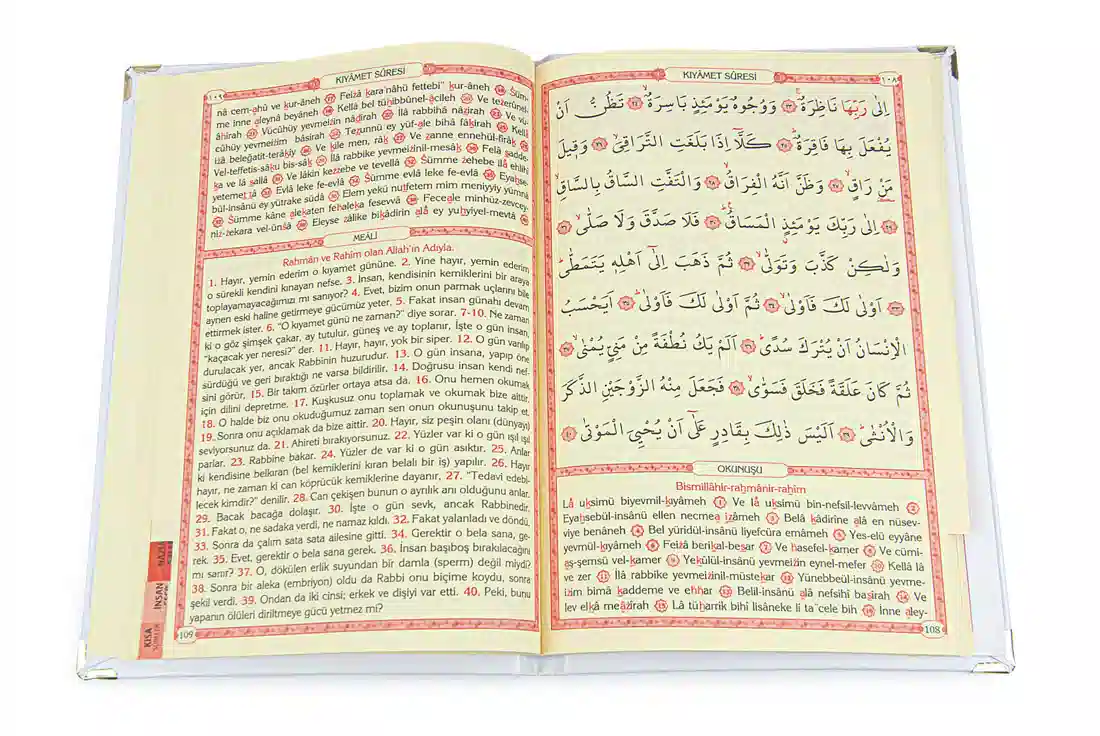 KIYÂMET SÛRESİ
١٠٨
اِلٰى رَبِّهَا نَاظِرَةٌۚ ﴿٢٣﴾ وَوُجُوهٌ يَوْمَئِذٍ بَاسِرَةٌۙ ﴿٢٤﴾ تَظُنُّ اَنْ
يُفْعَلَ بِهَا فَاقِرَةٌۜ ﴿٢٥﴾ كَلَّٓا اِذَا بَلَغَتِ التَّرَاقِيَۙ ﴿٢٦﴾ وَقِيلَ
مَنْ رَاقٍۙ ﴿٢٧﴾ وَظَنَّ اَنَّهُ الْفِرَاقُۙ ﴿٢٨﴾ وَالْتَفَّتِ السَّاقُ بِالسَّاقِۙ
﴿٢٩﴾ اِلٰى رَبِّكَ يَوْمَئِذٍ الْمَسَاقُۜ ﴿٣٠﴾ فَلَا صَدَّقَ وَلَا صَلّٰىۙ ﴿٣١﴾
وَلٰكِنْ كَذَّبَ وَتَوَلّٰىۙ ﴿٣٢﴾ ثُمَّ ذَهَبَ اِلٰٓى اَهْلِهٖ يَتَمَطّٰىۜ
﴿٣٣﴾ اَوْلٰى لَكَ فَاَوْلٰىۙ ﴿٣٤﴾ ثُمَّ اَوْلٰى لَكَ فَاَوْلٰىۜ ﴿٣٥﴾ اَيَحْسَبُ
الْاِنْسَانُ اَنْ يُتْرَكَ سُدًىۜ ﴿٣٦﴾ اَلَمْ يَكُ نُطْفَةً مِنْ مَنِيٍّ يُمْنٰىۙ ﴿٣٧﴾
ثُمَّ كَانَ عَلَقَةً فَخَلَقَ فَسَوّٰىۙ ﴿٣٨﴾ فَجَعَلَ مِنْهُ الزَّوْجَيْنِ الذَّكَرَ
وَالْاُنْثٰىۜ ﴿٣٩﴾ اَلَيْسَ ذٰلِكَ بِقَادِرٍ عَلٰٓى اَنْ يُحْيِيَ الْمَوْتٰى ﴿٤٠﴾
OKUNUŞU
Bismillâhir-rahmânir-rahîm
Lâ uksimü biyevmil-kıyâmeh 1 Ve lâ uksimü bin-nefsil-levvâmeh 2
Eyahsebül-insânü ellen necmea ızâmeh 3 Belâ kâdirîne alâ en nüsev-
viye benâneh 4 Bel yürîdül-insânü liyefcüra emâmeh 5 Yes-elü eyyâne
yevmül-kıyâmeh 6 Feizâ berikal-besar 7 Ve hasefel-kamer 8 Ve cümi-
aş-şemsü vel-kamer 9 Yekûlül-insânü yevmeizin eynel-mefer 10 Kellâ lâ
ve zer 11 İlâ rabbike yevmeizinil-müstekar 12 Yünebbeül-insânü yevme-
izim bimâ kaddeme ve ehhar 13 Belil-insânü alâ nefsihî basîrah 14 Ve
lev elkâ meâzîrah 15 Lâ tüharrik bihî lisâneke li ta'cele bih 16 İnne aley-
108
KIYÂMET SÛRESİ
١٠٩
nâ cem-ahû ve kur-âneh 17 Feizâ kara'nâhü fettebi" kur-âneh 18 Süm-
me inne aleynâ beyâneh 19 Kellâ bel tühıbbûnel-âcileh 20 Ve tezerûnel-
âhırah 21 Vücûhüy yevmeizin nâdırah 22 İlâ rabbihâ nâzırah 23 Ve vü-
cûhüy yevmeizim bâsirah 24 Tezunnü ey yüf-ale bihâ fâkırah 25 Kellâ
izâ beleğatit-terâkıy 26 Ve kîle men, râk 27 Ve zanne ennehül-firâk 28
Vel-teffetis-sâku bis-sâk 29 İlâ rabbike yevmeizinil-mesâk 30 Felâ sadde-
ka ve lâ sallâ 31 Ve lâkin kezzebe ve tevellâ 32 Sümme zehebe ilâ ehlihî
yetemettâ 33 Evlâ leke fe-evlâ 34 Sümme evlâ leke fe-evlâ 35 Eyahse-
bül-insânü ey yütrake südâ 36 Elem yekü nutfetem mim meniyyiy yümnâ
37 Sümme kâne alekaten fehaleka fesevvâ 38 Feceale minhüz-zevcey-
niz-zekara vel-ünsâ 39 Eleyse zâlike bikâdirin alâ ey yuhyiyel-mevtâ 40
MEÂLİ
Rahmân ve Rahîm olan Allah'ın Adıyla.
1. Hayır, yemin ederim o kıyamet gününe. 2. Yine hayır, yemin ederim
o sürekli kendini kınayan nefse. 3. İnsan, kendisinin kemiklerini bir araya
toplayamayacağımızı mı sanıyor? 4. Evet, bizim onun parmak uçlarını bile
aynen eski haline getirmeye gücümüz yeter. 5. Fakat insan günahı devam
ettirmek ister. 6. "O kıyamet günü ne zaman?" diye sorar. 7-10. Ne zaman
ki o göz şimşek çakar, ay tutulur, güneş ve ay toplanır, İşte o gün insan,
"kaçacak yer neresi?" der. 11. Hayır, hayır, yok bir siper. 12. O gün varılıp
durulacak yer, ancak Rabbinin huzurudur. 13. O gün insana, yapıp öne
sürdüğü ve geri bıraktığı ne varsa bildirilir. 14. Doğrusu insan kendi nef-
sini görür, 15. Bir takım özürler ortaya atsa da. 16. Onu hemen okumak
için dilini depretme. 17. Kuşkusuz onu toplamak ve okumak bize aittir.
18. O halde biz onu okuduğumuz zaman sen onun okunuşunu takip et.
19. Sonra onu açıklamak da bize aittir. 20. Hayır, siz peşin olanı (dünyayı)
seviyorsunuz da. 21. Ahireti bırakıyorsunuz. 22. Yüzler var ki o gün ışıl ışıl
parlar. 23. Rabbine bakar. 24. Yüzler de var ki o gün asıktır. 25. Anlar
ki kendisine belkıran (bel kemiklerini kıran belalı bir iş) yapılır. 26. Hayır
hayır, ne zaman ki can köprücük kemiklerine dayanır, 27. "Tedavi edebi-
lecek kimdir?" denilir. 28. Can çekişen bunun o ayrılık anı olduğunu anlar.
29. Bacak bacağa dolaşır. 30. İşte o gün sevk, ancak Rabbinedir.
31. Fakat o, ne sadaka verdi, ne namaz kıldı. 32. Fakat yalanladı ve döndü.
33. Sonra da çalım sata sata ailesine gitti. 34. Gerektir o bela sana, ge-
rek. 35. Evet, gerektir o bela sana gerek. 36. İnsan başıboş bırakılacağını
mı sanır? 37. O, dökülen erlik suyundan bir damla (sperm) değil miydi?
38. Sonra bir aleka (embriyon) oldu da Rabbi onu biçime koydu, sonra
şekil verdi. 39. Ondan da iki cinsi; erkek ve dişiyi var etti. 40. Peki, bunu
yapanın ölüleri diriltmeye gücü yetmez mi?
109
İNSAN
KISA
SURELER